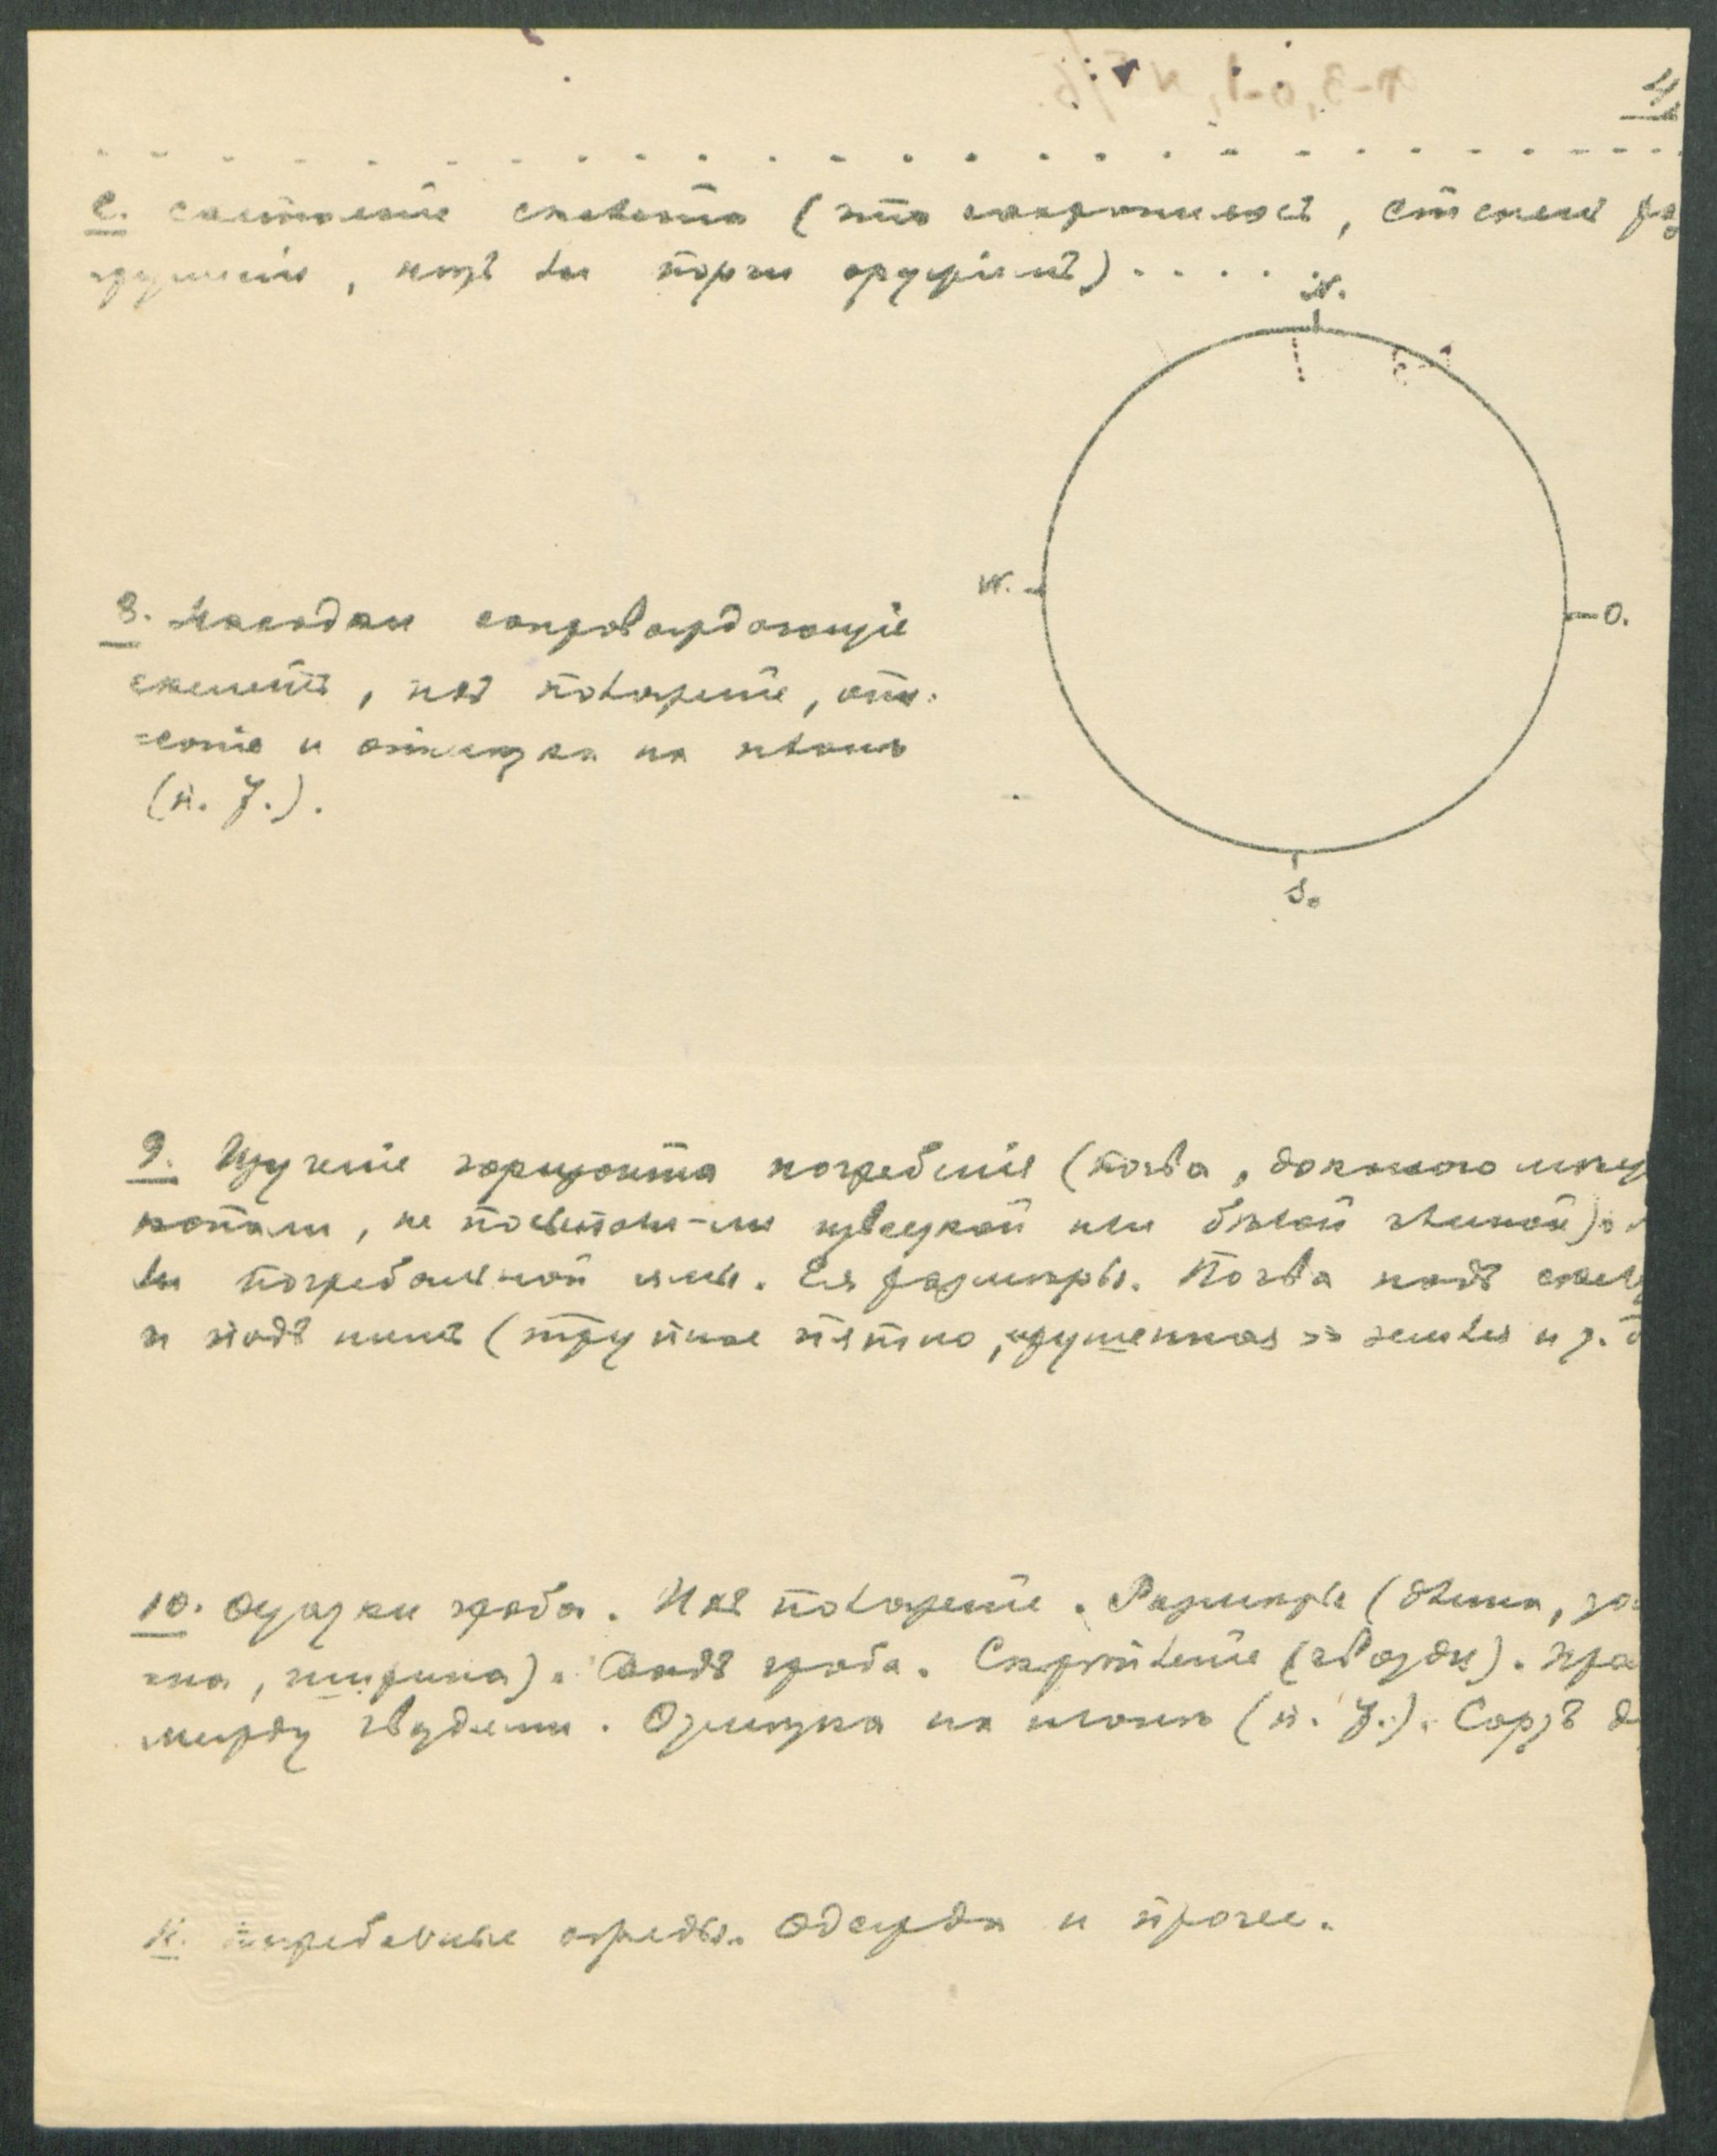 4
е. состояніе скелета (что сохранилось, степень ра
зрушенія, нѣтъ ли порчи орудіемъ) . . . .
N.
W.
O.
S.
8. Находки сопровождающіе
скелетъ, ихъ положеніе, опи-
=саніе и отмѣтка на планѣ
(п. 7.).
9. Изученіе горизонта погребенія (почва, докуда
копали, не посыпана-ли известкой или бѣлой глиной)
ли погребальной ямы. Ея размѣры. Почва надъ скел
и подъ нимъ (трупное пятно, земля и
10. гроба. Ихъ положеніе. Размѣры (длина,
на, ширина). гроба. Скрѣпленіе (гвозди).
между гвоздями. на планѣ (п. 7.). Сортъ д
11. погребальные одежды. Одежда и прочее.